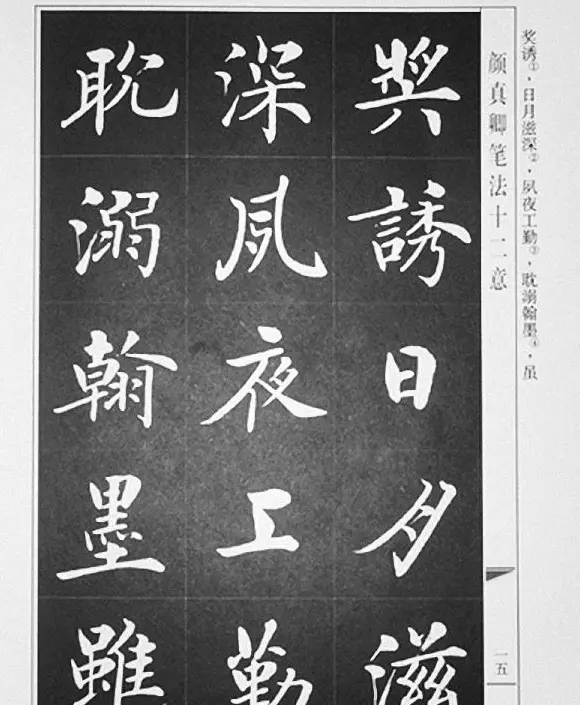 奖诱①，日月滋深②，夙夜工勤③，耽溺翰墨④，虽
颜真卿笔法十二意
一五
奬誘日月滋
深夙夜工勤
耽溺翰墨雖